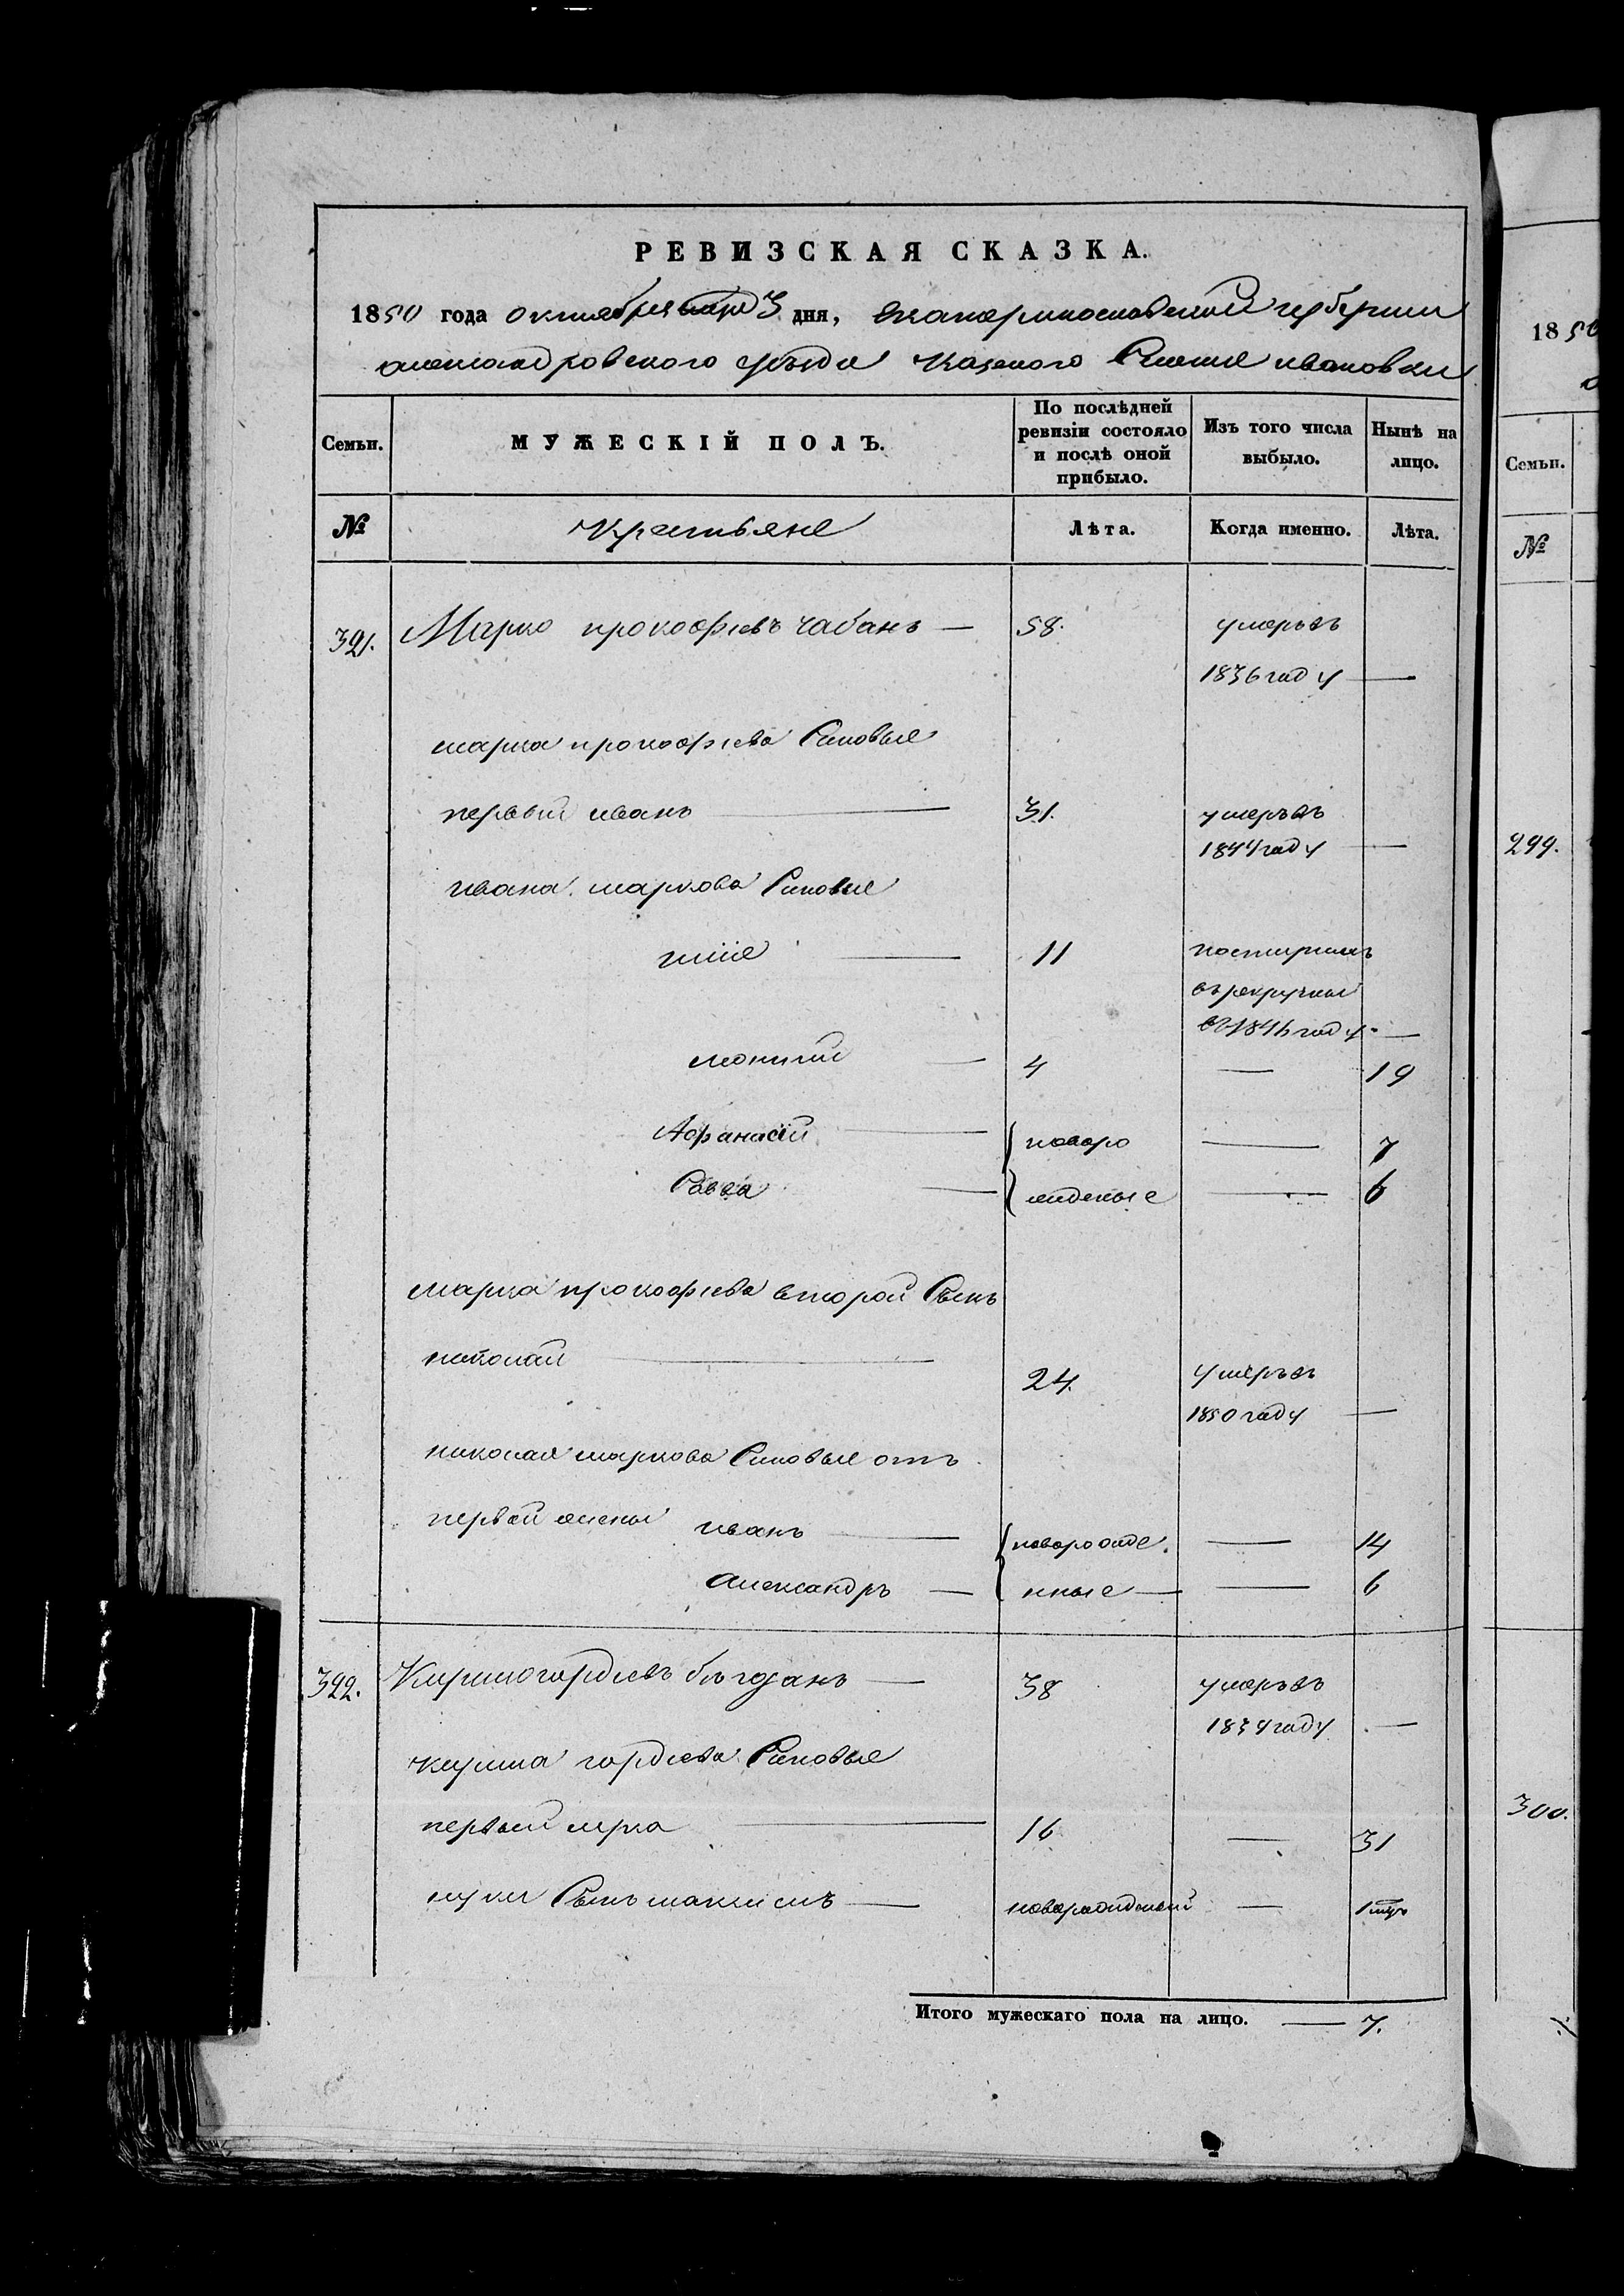 РЕВИЗСКАЯ СКАЗКА.
1850 года октября 3 дня, Екатеринославской губернии
александровского уезда казеного Селенія ивановки
Семьи.
МУЖЕСКІЙ ПОЛЪ.
По послѣдней ревизіи состояло и послѣ оной прибыло.
Изъ того числа выбыло.
Нынѣ на лицо.
№
Крестьяне
Лѣта.
Когда именно.
Лѣта.
391. Марко прокофіевъ чабанъ — 58. умеръ въ
1836 году —
марка прокофіева Синовье
первый иванъ — 31. умеръ въ
1844 году —
ивана маркова Синовье
11 поступилъ
въ рекруты
въ 1846 году —
4 — 19
Афанасій — новоро — 7
Савва — жденые — 6
марка прокофіева второй Сынъ
николай — 24. умеръ въ
1850 году —
николая маркова Синовье отъ
первой жены иванъ — новорожде. — 14
Александръ — нные — — 6
392. гордіевъ — 38 умеръ въ
1834 году —
гордіева Синовье
первый — 16 — 31
Сынъ максимъ — новорожденый — 1
Итого мужескаго пола на лицо. — 7.
1850
Семьи.
№
299.
300.